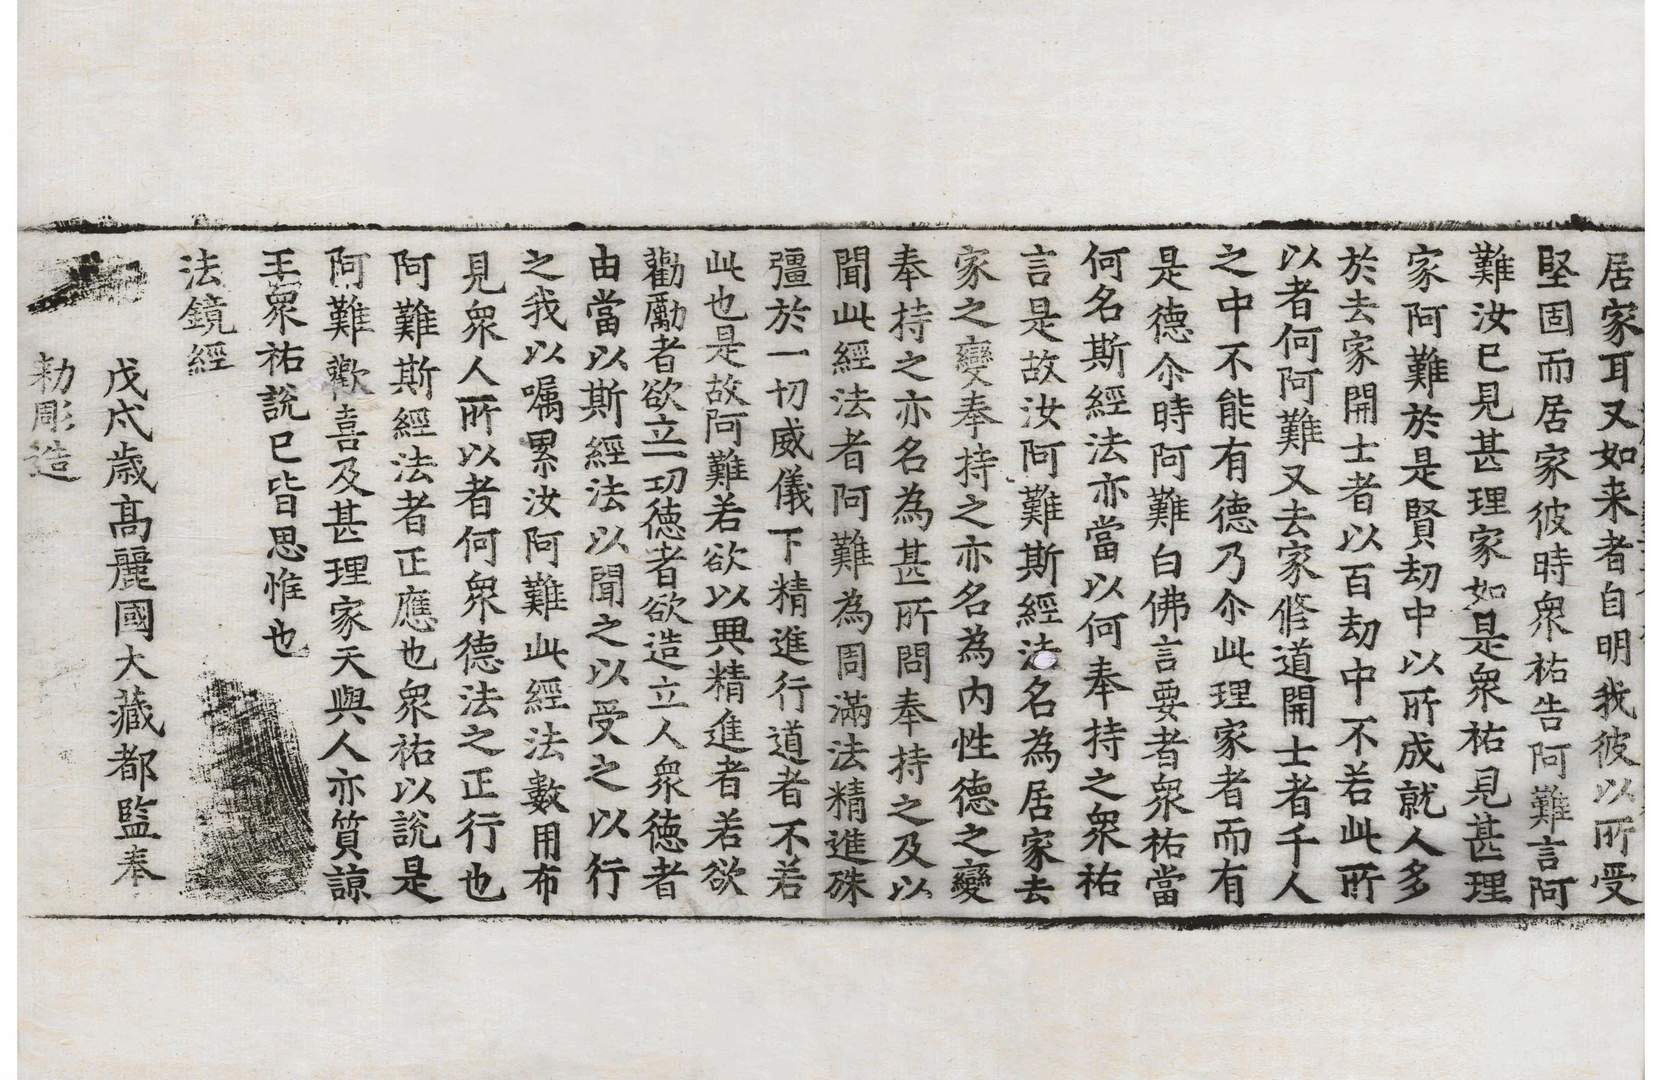 居家耳又如来者自明我彼以所受
堅固而居家彼時衆祐告阿難言阿
難汝已見甚理家如是衆祐見甚理
家阿難於是賢劫中以所成就人多
於去家開士者以百劫中不若此所
以者何阿難又去家修道開士者千人
之中不能有德乃尒此理家者而有
是德尒時阿難白佛言要者衆祐當
何名斯經法亦當以何奉持之衆祐
言是故汝阿難斯經法名為居家去
家之變奉持之亦名為內性德之變
奉持之亦名為甚所問奉持之及以
聞此經法者阿難為周滿法精進殊
彊於一切威儀下精進行道者不若
此也是故阿難若欲以興精進者若欲
勸勵者欲立一切德者欲造立人衆德者
由當以斯經法以聞之以受之以行
之我以嘱累汝阿難此經法數用布
見衆人所以者何衆德法之正行也
阿難斯經法者正應也衆祐以說是
阿難歡喜及甚理家天與人亦質諒
王衆祐說已皆思惟也
法鏡經
戊戌歲高麗國大藏都監奉
勅彫造